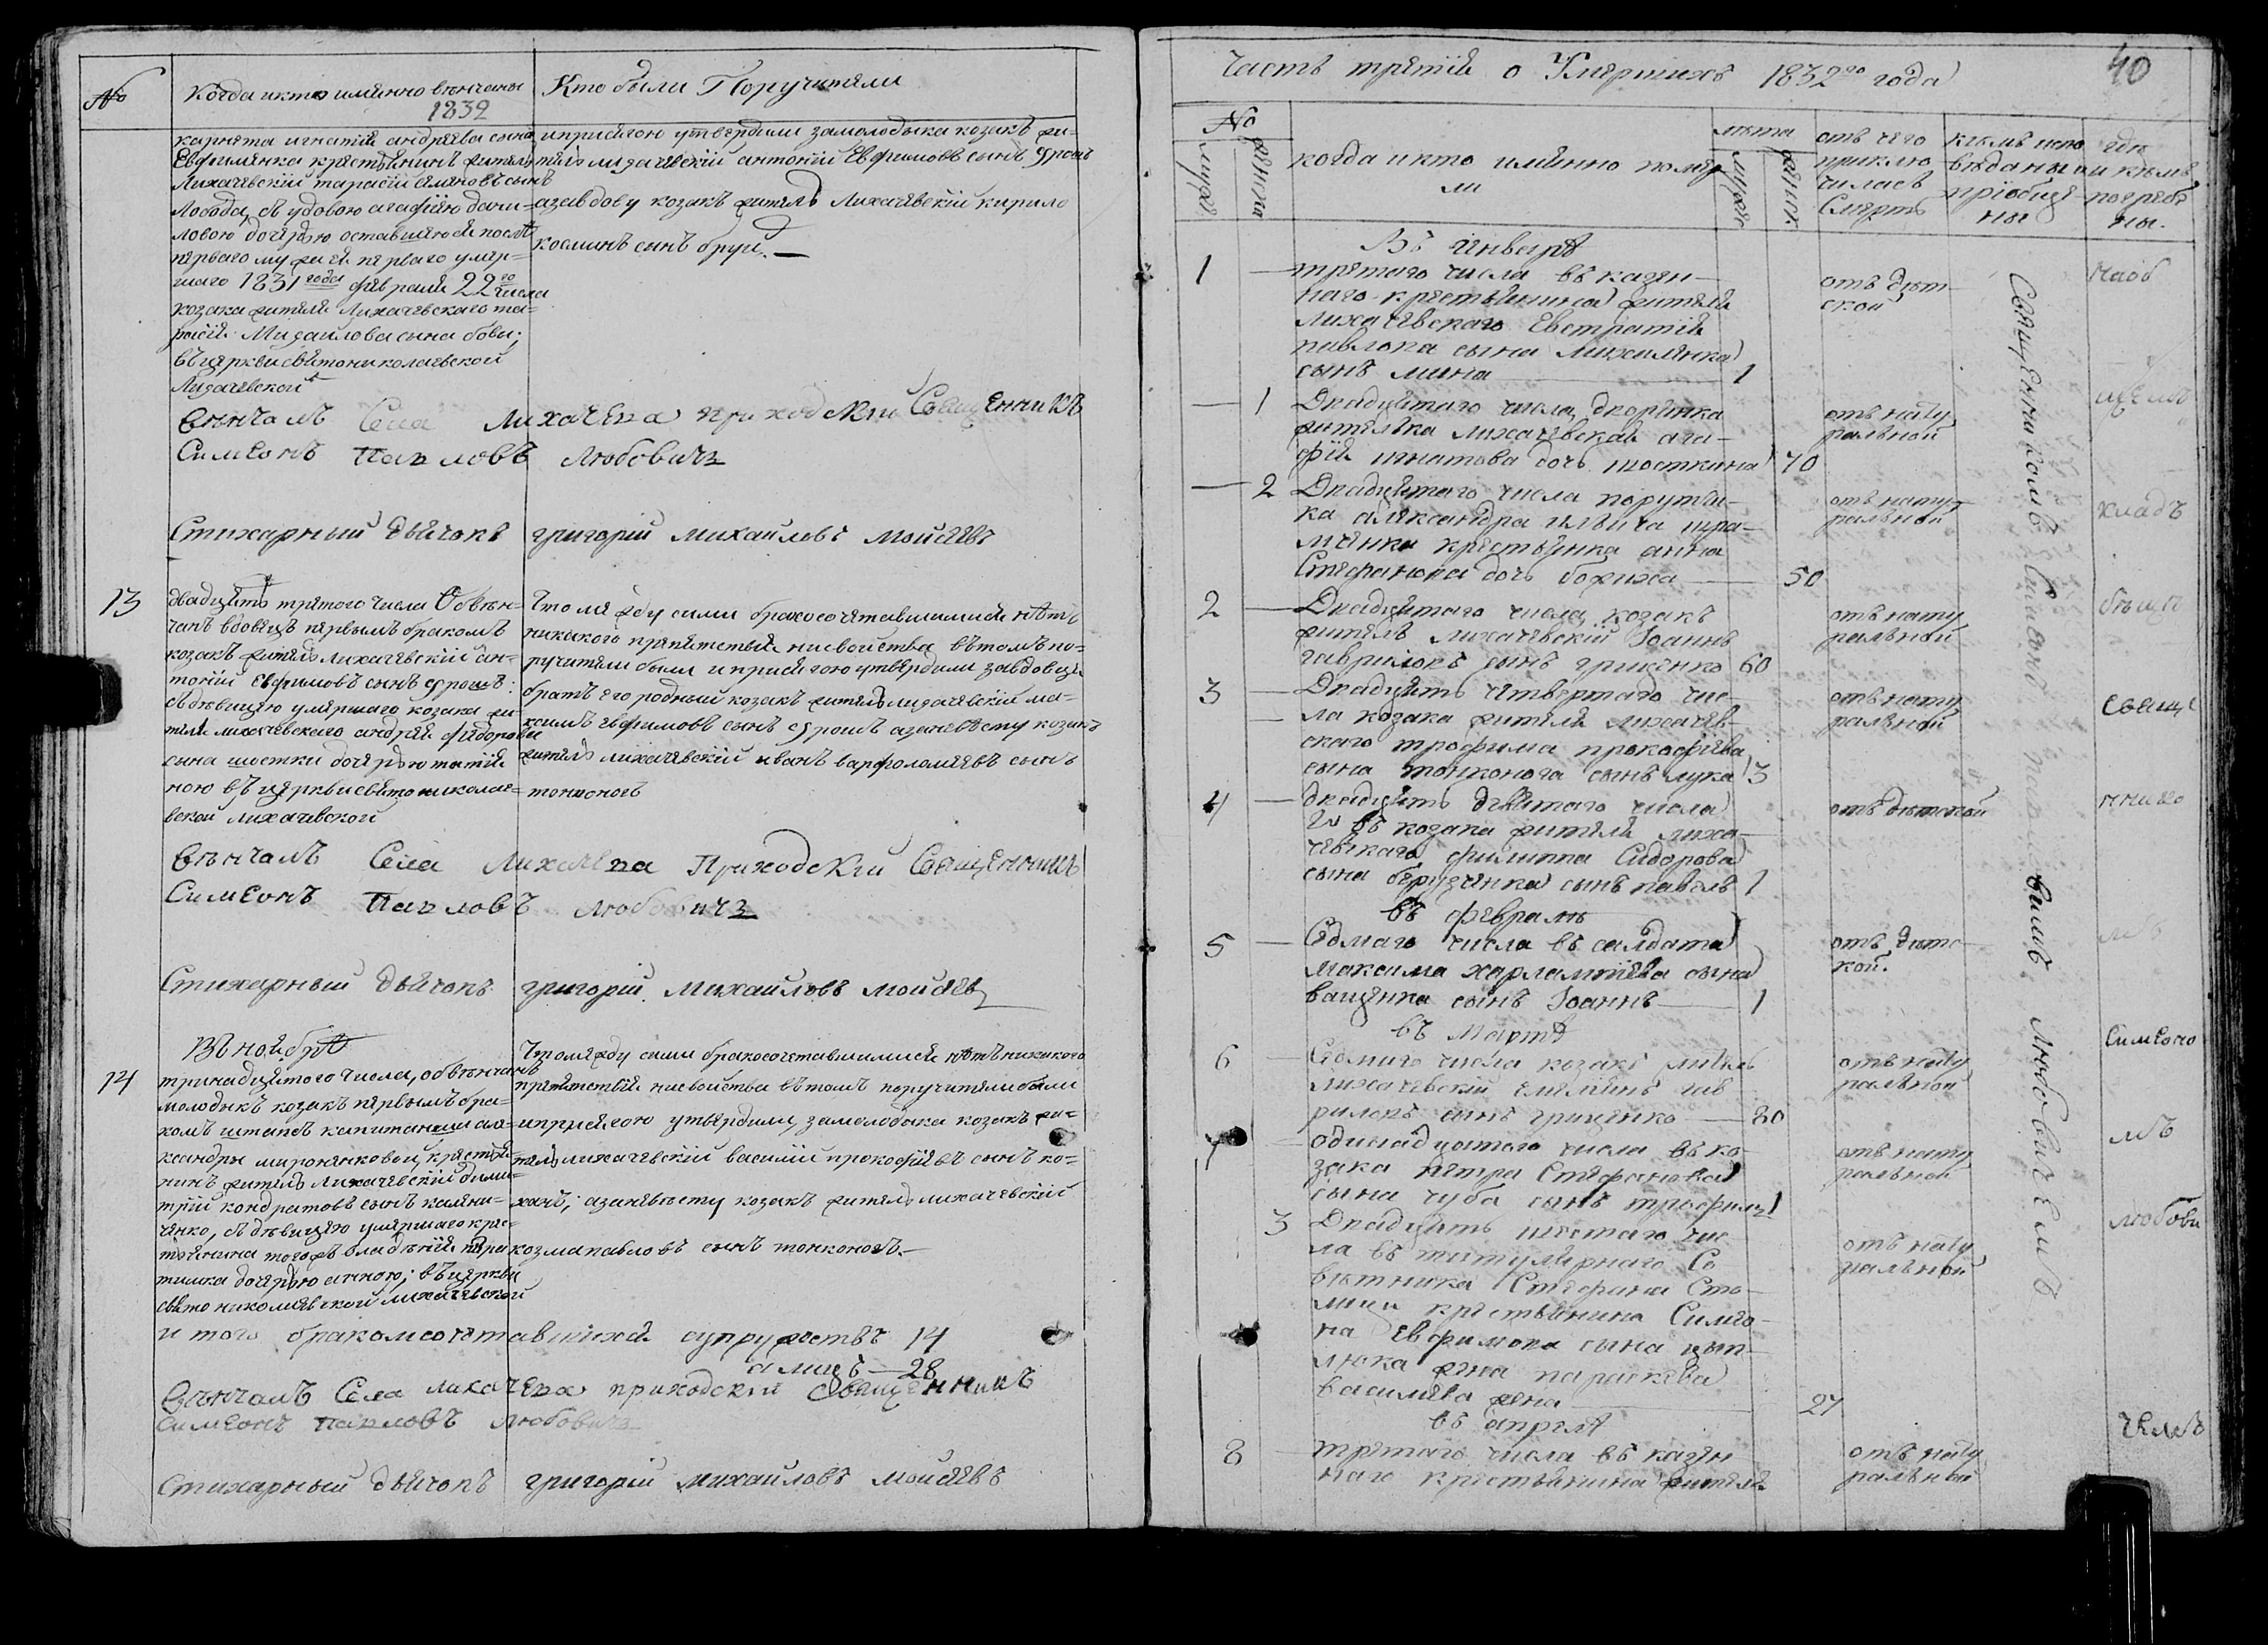 №
когда и кто имянно венчаны
1832
Кто были Поручители
карнета игнатія андреева сына
Евфименка крестьянинъ жител
Лихачевскій тарасій семеновъ сынъ
Лобода, съ удовою агафіею дани-
ловою дочерью оставшеюся послѣ
перваго мужа ея перваго умер-
шаго 1831 года февраля 22го числа
козака жителя Лихачевскаго та-
расія Михаилова сына бови;
въ церкви святониколаевской
Лихачевской
и присягою утвердили за молодыка козакъ жи-
тель лихачевскій антоній Евфимовъ сынъ ярошъ
а за вдову козакъ житель Лихачевскій кирило
косминъ сынъ бруй. —
венчалъ Села Лихачева приходскій Священникъ
Симеонъ Павловъ Любовичъ
Стихарный дьячокъ григорій михайловъ мойсеевъ
13
двадцять третого числа Обвен-
чанъ вдовецъ первымъ бракомъ
козакъ житель Лихачевскій ан-
тоній Евфимовъ сынъ ярошъ:
съ девицею умершаго козака жи-
теля лихачевскаго андрея федорова
сына шостки дочерью татія-
ною въ церкви святониколае-
вской лихачевской
Что между сими бракосочетавшимися нѣтъ
никакого препятствія ни свойства въ томъ по-
ручители были и присягою утвердили за вдовца
братъ его родный козакъ житель лихачевскій ма-
ксимъ евфимовъ сынъ ярошъ а за невесту козакъ
житель лихачевскій иванъ варфоломеевъ сынъ
тонконогъ
венчалъ Села Лихачева Приходскій Священникъ
Симеонъ Павловъ Любовичъ
Стихарный дьячокъ григорій михайловъ мойсеевъ
Въ ноябрѣ
14
тринадцятого числа, обвенчанъ
молодыкъ козакъ первымъ бра-
комъ штапсъ капитанши але-
ксандры мироненковой, крестья-
нинъ житель Лихачевскій дими-
трій кондратовъ сынъ
ченко, съ девицею умершаго кре-
стьянина того жъ владенія
дочерью анною; въ церкви
святониколаевской лихачевской
Что между сими бракосочетавшимися нѣтъ никакого
препятствія ни свойства въ томъ поручители были
и присягою утвердили, за молодыка козакъ жи-
тель лихачевскій василій прокофіевъ сынъ ко-
ханъ; а за невесту козакъ житель лихачевскій
козма павловъ сынъ тонконогъ. —
и того бракомсочетавшихся супружествъ 14
а лицъ — 28
венчалъ Села лихачева приходскій Священникъ
Симеонъ Павловъ Любовичъ
Стихарный дьячокъ григорій михайловъ мойсеевъ
Часть третія о Умершихъ 1832го года
40
№
мужеск
женска
когда и кто имянно помер
ли
лѣта
мужес
женск.
отъ чего
приклю
чилась
Смерть
кѣмъ испо
веданы и
приобще
ны
где
и кѣмъ
погреб
ны.
Въ Генварѣ
1
третаго числа въ казен-
наго крестьянина жителя
лихачевскаго Евстратія
павлова сына михиленка
сынъ мина 1
отъ дет
ской
1
Двадцятаго числа дворянка
жителька лихачевская ага-
фія игнатова дочь шосткина 70
отъ нату
ральной
2
Двадцятаго числа поручи-
ка александра ильича
крестьянка анна
Стефанова дочь 50
отъ нату
ральной
2
Двадцятаго числа козакъ
житель лихачевскій Іоаннъ
гавриловъ сынъ гриценко 60
отъ нату
ральной
3
Двадцять четвертаго чис-
ла козака жителя лихачев-
скаго трофима прокофіева
сына тонконога сынъ лука 3
отъ нату
ральной
4
двадцять девятаго числа
въ козака жителя лиха-
чевскаго филиппа Сидорова
сына сынъ павелъ 1
отъ детской
въ февралѣ
5
Седмаго числа въ салдата
Максима харлампіева сына
ващенка сынъ Іоаннъ 1
отъ детс
кой.
въ Мартѣ
6
Седмаго числа козакъ житель
лихачевскій гав
риловъ сынъ гриценко — 80
отъ нату
ральной
7
одинадцятаго числа въ ко-
зака петра Стефанова
сына чуба сынъ трофимъ 1
отъ нату
ральной
3
Двадцять шестаго чис-
ла въ титулярнаго Со
ветника Стефана Сто-
лици крестьянина Симео-
на Евфимова сына
жена параскева
василіева жена 27
отъ нату
ральной
въ апрелѣ
8
третаго числа въ казен
наго крестьянина жителя
отъ нату
ральной
Священникомъ Симеономъ Павловымъ Любовичемъ
на об
щемъ
кладъ
бище
Свяще
ннико
мъ
Симеоно
мъ
Любови
чемъ